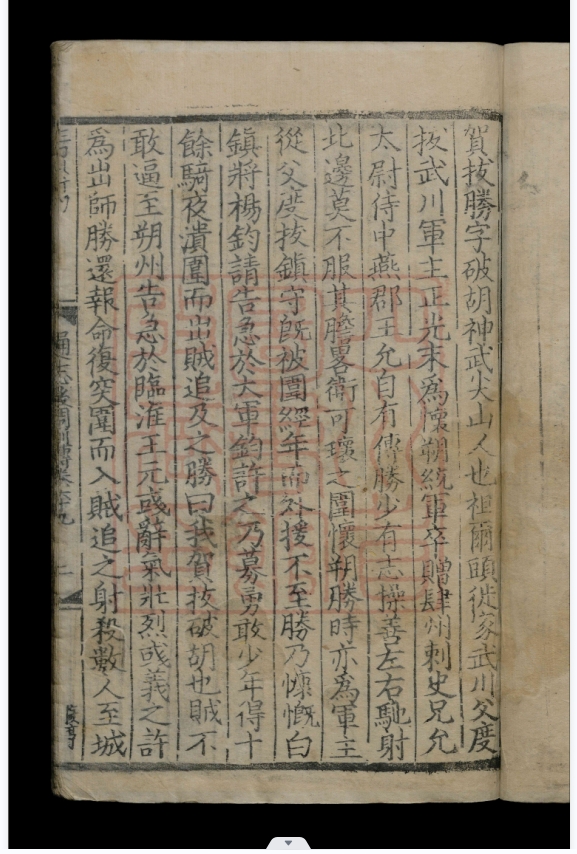 賀拔勝字破胡神武尖山人也祖爾頭徙家武川父度
拔武川軍主正光末爲懷朔統軍卒贈肆州刺史兄允
太尉侍中燕郡王允自有傳勝少有志操善左右馳射
北邊莫不服其膽畧衛可瓌之圍懷朔勝時亦爲軍主
從父度拔鎮守旣被圍經年而外援不至勝乃慷慨白
鎮將楊鈞請告急於大軍鈞許之乃募勇敢少年得十
餘騎夜潰圍而出賊追及之勝曰我賀拔破胡也賊不
敢逼至朔州告急於臨淮王元彧辭氣壯烈彧義之許
爲出師勝還報命復突圍而入賊追之射殺數人至城